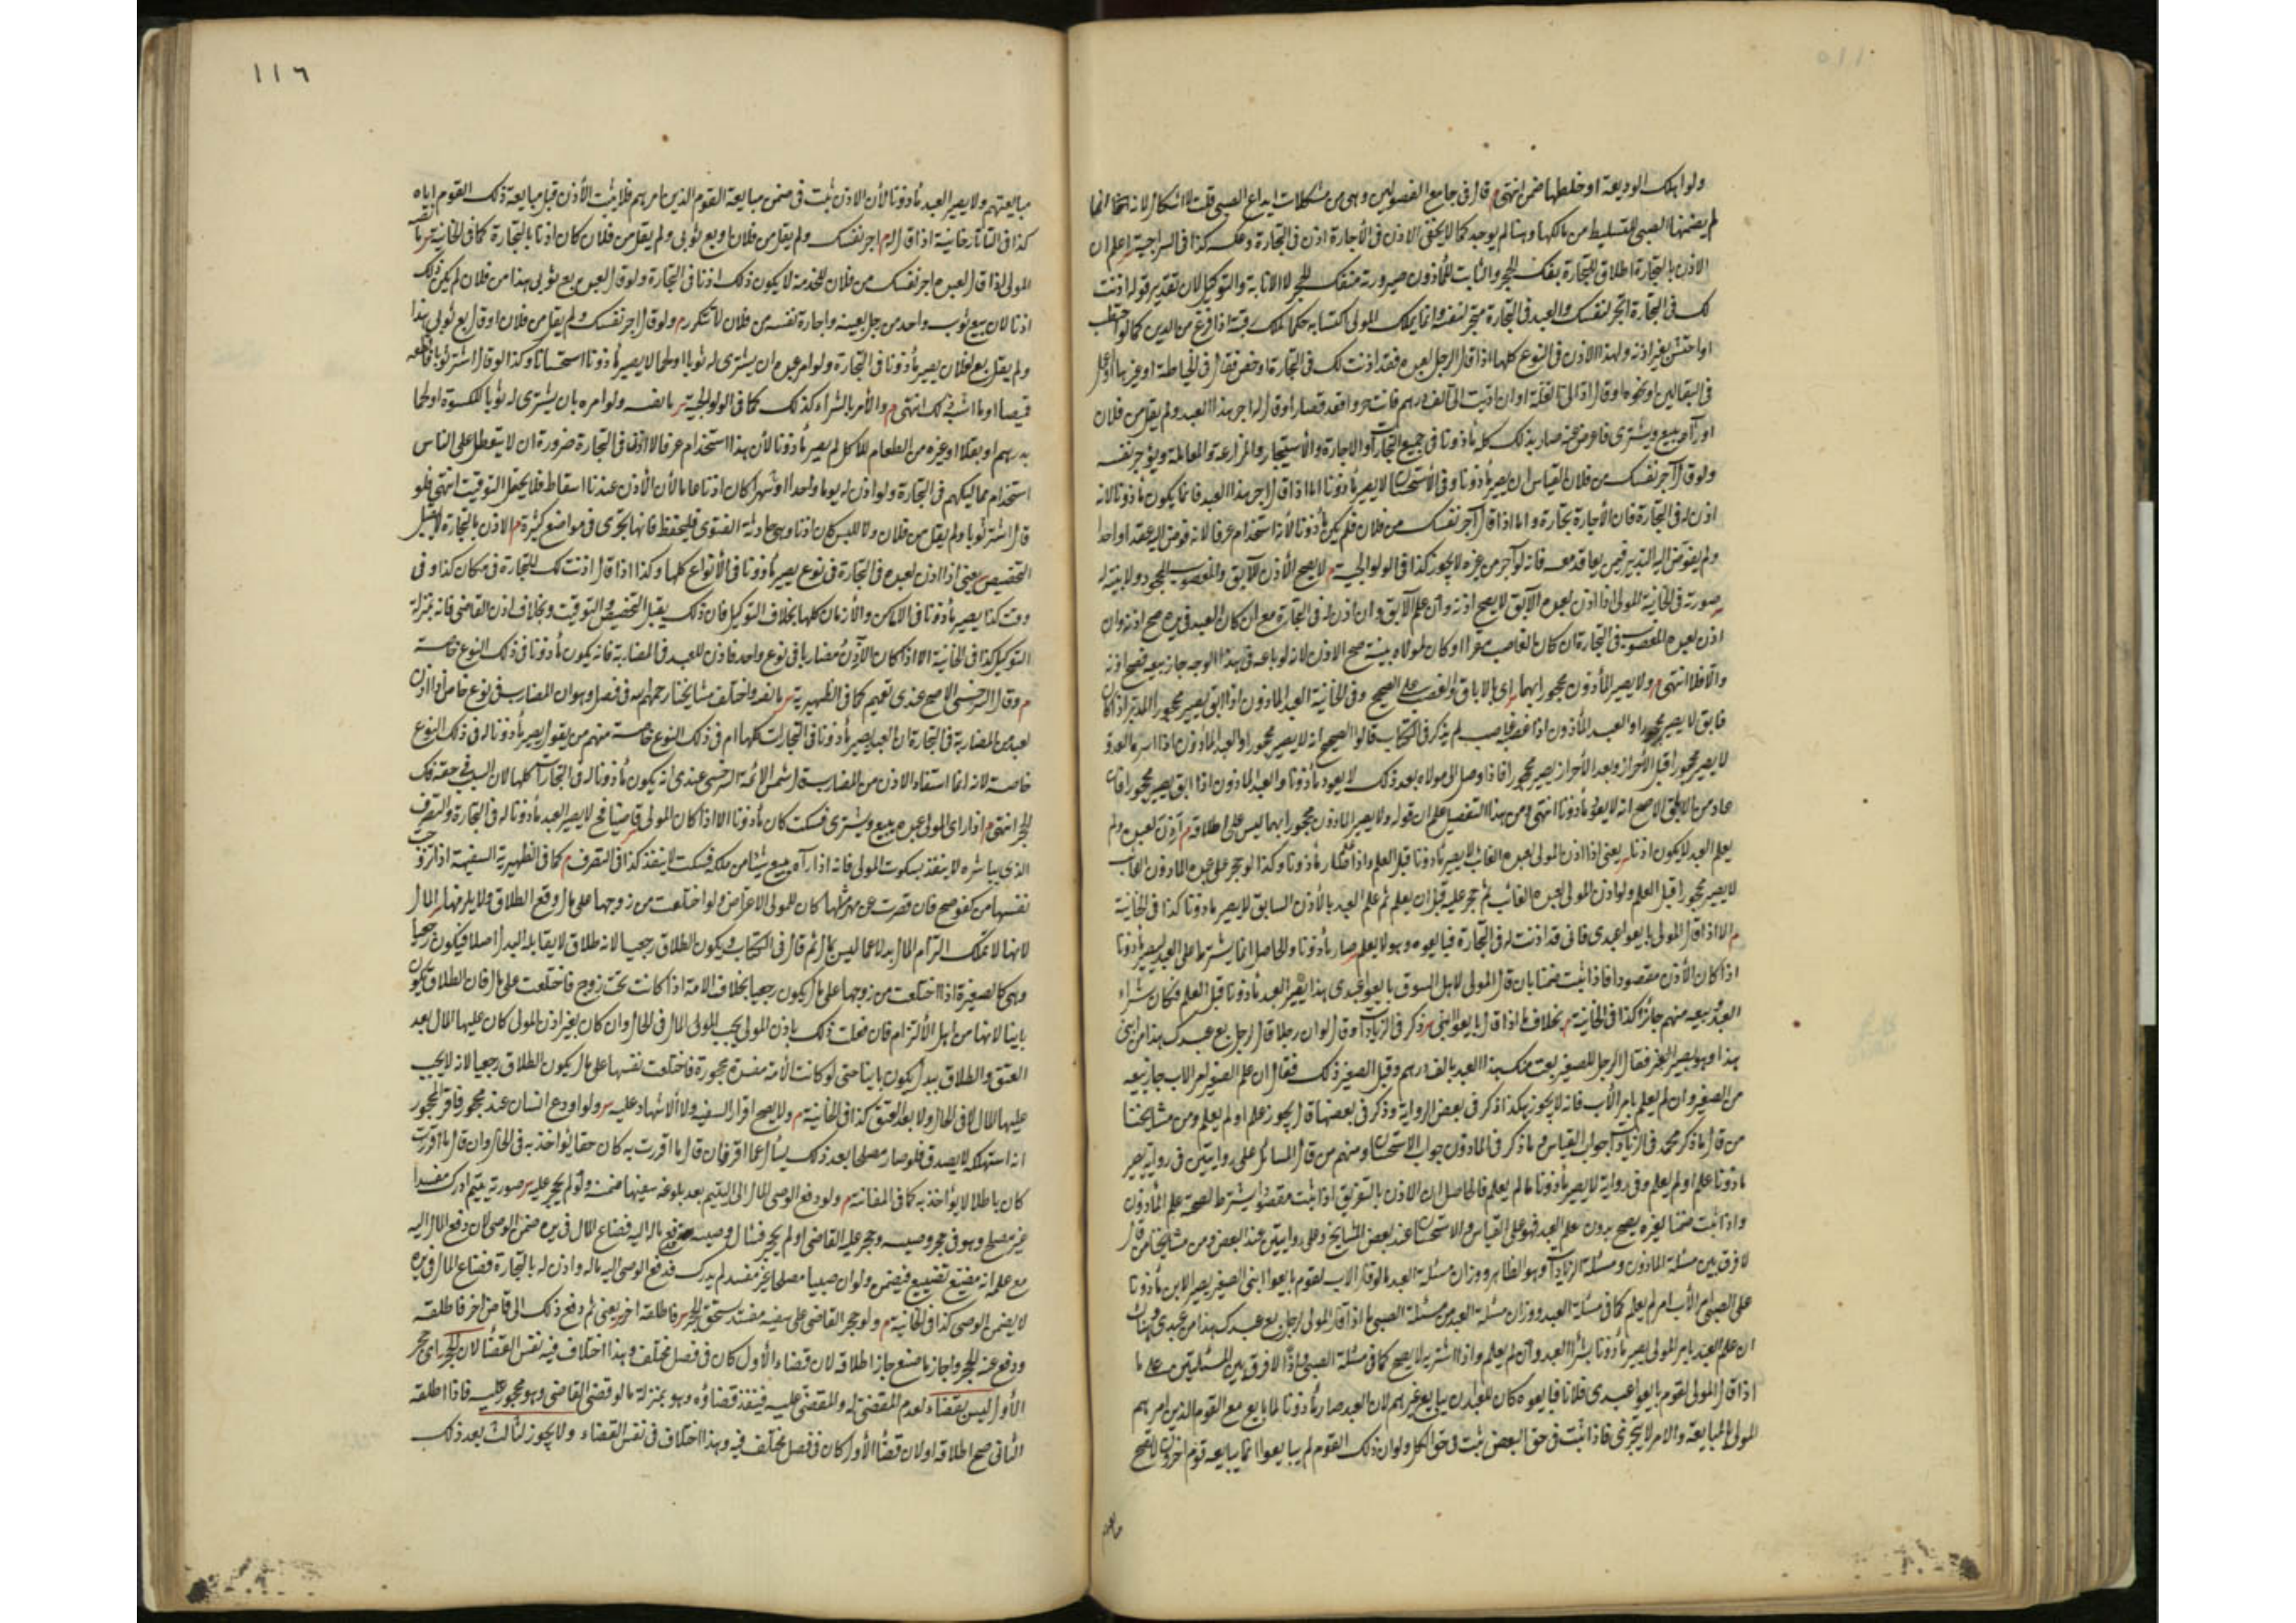 ولو اهلك الوديعة او خلطها ضمن انتهى م قال فى جامع الفصولين وهى من مشكلات ايداع الصبى قلت لا اشكال لانه انما
لم يضمنها الصبى للتسليط من مالكها وهنا لم يوجد كما لا يخفى الاذن فى الأجارة اذن فى التجارة وعكسه كذا فى السراجية اعلم ان
الاذن بالتجارة اطلاق للتجارة بفك الحجر والثابت للمأذون صيرورته منفك الحجر لا الانابة والتوكيل لان تقدير قوله اذنت
لك فى التجارة اتجر لنفسك والعبد فى التجارة متجر لنفسه وانما يملك المولى اكتسابه حكما لملك رقبته اذا فرغ من الدين كما لو احتطب
او احتش بغير اذنه ولهذا الاذن فى النوع كلها اذا قال الرجل لعبده فقد اذنت لك فى التجارة او خص فقال فى الخياطة او غيرها او اعمل
فى البقالين او نحوه او قال اد الى الغلة او ان اديت الى الف درهم فانت حر او اقعد قصارا او قال اجر هذا العبد ولم يقل من فلان
او رآه يبيع ويشترى فاعرض عنه صار بذلك كله مأذونا فى جميع التجارات والاجارة والأستيجار والمزارعة والمعاملة ويؤجر نفسه
ولو قال آجر نفسك من فلان القياس ان يصير مأذونا وفى الأستحسان لا يصير مأذونا اما اذا قال اجر هذا العبد فانما يكون مأذونا لانه
اذن له فى التجارة فان الأجارة تجارة واما اذا قال آجر نفسك من فلان فلم يكن مأذونا لأنه استخدام عرفا لانه فوض اليه عقدا واحدا
ولم يفوض اليه التدبير فيمن يعاقد معه فانه لو آجر من غيره لا يجوز كذا فى الولوالجية م لا يصح الأذن للآبق والمغصوب المجحود ولا بينة له
صورته فى الخانية المولى اذا اذن لعبده الآبق لا يصح اذنه وان علم الآبق وان اذن له فى التجارة مع ان كان العبد فى يده صح اذنه وان
اذن لعبده المغصوب فى التجارة ان كان الغاصب مقرا او كان لمولاه بينة صح الاذن لانه لو باعه فى هذا الوجه جاز بيعه فصح اذنه
والا فلا انتهى م ولا يصير المأذون محجورا بهما اى بالاباق والغصب على الصحيح وفى الخانية العبد المأذون اذا ابق يصير محجورا المدبر اذا كان
فابق لا يصير محجورا والعبد المأذون اذا غصبه غاصب لم يذكر فى الكتاب قالوا الصحيح انه لا يصير محجورا والعبد المأذون اذا اسره العدو
لا يصير محجورا قبل الأحراز وبعد الأحراز يصير محجورا فاذا وصل الى مولاه بعد ذلك لا يعود مأذونا والعبد المأذون اذا ابق يصير محجورا فان
عاد من الاباق الاصح انه لا يعود مأذونا انتهى ومن هذا التفصيل علم ان قوله ولا يصير المأذون محجورا بهما ليس على اطلاقه م اذن لعبده ولم
يعلم العبد لا يكون اذنا يعنى اذا اذن المولى لعبده الغائب لا يصير مأذونا قبل العلم واذا علم صار مأذونا وكذا لو حجر على عبده المأذون الغائب
لا يصير محجورا قبل العلم ولو اذن المولى لعبده الغائب ثم حجر عليه قبل ان يعلم ثم علم العبد بالأذن السابق لا يصير مأذونا كذا فى الخانية
م الا اذا قال المولى بايعوا عبدى فانى قد اذنت له فى التجارة فبايعوه وهو لا يعلم صار مأذونا والحاصل انما يشترط على العبد ليصير مأذونا
اذا كان الأذن مقصودا فاذا ثبت ضمنا بان قال المولى لاهل السوق بايعوا عبدى هذا يصير العبد مأذونا قبل العلم فكان شراء
العبد وبيعه منهم جائزا كذا فى الخانية م بخلاف ما اذا قال بايعوا ابنى ذكر فى الزيادات وقال لو ان رجلا قال لرجل بع عبدك هذا من ابنى
هذا وهو صغير فقال الرجل للصغير بعت منك هذا العبد بالف درهم وقبل الصغير ذلك فقال ان علم الصغير امر الاب جاز بيعه
من الصغير وان لم يعلم بامر الأب فانه لا يجوز هكذا ذكر فى بعض الرواية وذكر فى بعضها قال يجوز علم او لم يعلم ومن مشايخنا
من قال ما ذكر محمد فى الزيادات جواب القياس وما ذكر فى المأذون جواب الاستحسان ومنهم من قال المسائل على روايتين فى رواية يصير
مأذونا علم او لم يعلم وفى رواية لا يصير مأذونا ما لم يعلم فالحاصل ان الاذن بالتعريق اذا ثبت مقصودا يشترط لصحته علم المأذون
واذا ثبت ضمنا لغيره يصح بدون علم العبد فهو على القياس والاستحسان عند بعض المشايخ وعلى روايتين عند البعض ومن مشايخنا من قال
لا فرق بين مسئلة المأذون ومسئلة الزيادات وهو الظاهر ووزان مسئلة العبد ما لو قال الاب لقوم بايعوا ابنى الصغير يصير الابن مأذونا
علم الصبى امر الأب ام لم يعلم كما فى مسئلة العبد ووزان مسئلة العبد من مسئلة الصبى ما اذا قال المولى لرجل بع عبدك هذا من عبدى وهناك
ان علم العبد بامر المولى يصير مأذونا بشراء العبد وان لم يعلم واذا اشتريه لا يصح كما فى مسئلة الصبى واذا لا فرق بين المسئلتين على ما
اذا قال المولى لقوم بايعوا عبدى فلانا فبايعوه كان للعبد ان يبايع غيرهم لان العبد صار مأذونا لما بايع مع القوم الذين امرهم
المولى بالمبايعة والامر لا يتجزى فاذا ثبت فى حق البعض ثبت فى حق الكل ولو ان ذلك القوم لم يبايعوا انما يبايعه قوم اخرون لا تصح
١١٦
مبايعتهم ولا يصير العبد مأذونا لأن الاذن ثبت فى ضمن مبايعة القوم الذين امرهم فلا يثبت الأذن قبل مبايعة ذلك القوم اياه
كذا فى التاتارخانية اذا قال له م اجر نفسك ولم يقل من فلان او بع ثوبى ولم يقل من فلان كان اذنا بالتجارة كما فى الخانية
المولى اذا قال لعبده اجر نفسك من فلان للخدمة لا يكون ذلك اذنا فى التجارة ولو قال لعبده بع ثوبى هذا من فلان لم يكن ذلك
اذنا لان بيع ثوب واحد من رجل بعينه واجارة نفسه من فلان لا تتكرر م ولو قال اجر نفسك ولم يقل من فلان او قال بع ثوبى هذا
ولم يقل بع لفلان يصير مأذونا فى التجارة ولو امر عبده ان يشترى له ثوبا او لحما لا يصير مأذونا استحسانا وكذا لو قال اشتر ثوبا فاقطعه
قميصا او ما اشبه ذلك انتهى م والأمر بالشراء كذلك كما فى الولوالجية ولو امره بان يشترى له ثوبا للكسوة او لحما
بدرهم او بقلا او غيره من الطعام للاكل لم يصير مأذونا لأن هذا استخدام عرفا لا اذنا فى التجارة ضرورة ان لا يتعطل على الناس
استخدام مماليكهم فى التجارة ولو اذن له يوما واحدا او شهرا كان اذنا عاما لأن الأذن عندنا اسقاط فلا يحتمل التوقيت انتهى فلو
قال اشتر ثوبا ولم يقل من فلان ولا للبس كان اذنا وهى حادثة الفتوى فليحفظ فانها تجرى فى مواضع كثيرة م الاذن بالتجارة لا يقبل
التخصيص يعنى اذا اذن لعبده فى التجارة فى نوع يصير مأذونا فى الأنواع كلها وكذا اذا قال اذنت لك للتجارة فى مكان كذا وفى
وقت كذا يصير مأذونا فى الاماكن والأزمان كلها بخلاف التوكيل فان ذلك يقبل التخصيص والتوقيت وبخلاف اذن القاضى فانه بمنزلة
التوكيل كذا فى الخانية الا اذا كان الآذن مضاربا فى نوع واحد فاذن للعبد فى المضاربة فانه يكون مأذونا فى ذلك النوع خاصة
م وقال السرخسى الاصح عندى تعميم كما فى الظهيرية واختلف مشايخنا رحمهم الله فى فصل وهو ان المضارب فى نوع خاص لو اذن
لعبد من المضاربة فى التجارة ان العبد يصير مأذونا فى التجارات كلها ام فى ذلك النوع خاصة منهم من يقول يصير مأذونا له فى ذلك النوع
خاصة لانه انما استفاد الاذن من المضارب قال شمس الائمة السرخسى عندى انه يكون مأذونا له فى التجارات كلها لان السبب فى حقه فك
الحجر انتهى م اذا راى المولى عبده يبيع ويشترى فسكت كان مأذونا الا اذا كان المولى قاضيا فح لا يصير العبد مأذونا له فى التجارة والتصرف
الذى يباشره لا ينفذ بسكوت المولى فانه اذا رآه يبيع شيئا من ملكه فسكت لا ينفذ كذا فى التصرف م كما فى الظهيرية السفيهة اذا تزوجت
نفسها من كفو صح فان قصرت عن مهر مثلها كان للمولى الاعتراض ولو اختلعت من زوجها على مال وقع الطلاق ولا يلزمها المال
لانها لا تملك التزام المال بدلا عما ليس بمال ثم قال فى الكتاب ويكون الطلاق رجعيا لانه طلاق لا يقابله البدل اصلا فيكون رجعيا
وهى كالصغيرة اذا اختلعت من زوجها على مال يكون رجعيا بخلاف الامة اذا كانت تحت زوج فاختلعت على مال فان الطلاق يكون
باينا لانها من اهل الألتزام فان فعلت ذلك باذن المولى يجب للمولى المال فى الحال وان كان بغير اذن المولى كان عليها المال بعد
العتق والطلاق ببدل يكون باينا حتى لو كانت الأمة مفسدة محجورة فاختلعت نفسها على مال يكون الطلاق رجعيا لانه لا يجب
عليها المال لا فى الحال ولا بعد العتق كذا فى الخانية م ولا يصح اقرار السفيه ولا الأشهاد عليه ولو اودع انسان عند محجور فاقر المحجور
انه استهلكه لا يصدق فلو صار مصلحا بعد ذلك يسأل عما اقر فان قال ما اقررت به كان حقا يؤاخذ به فى الحال وان قال ما اقررت
كان باطلا لا يؤاخذ به كما فى م ولو دفع الوصى المال الى اليتيم بعد بلوغه سفيها ضمنه ولو لم يحجر عليه صورته يتيم ادرك مفسدا
غير مصلح وهو فى حجر وصيه وحجر عليه القاضى او لم يحجر فسأل وصيه دفع ماله اليه فضاع المال فى يده ضمن الوصى لان دفع المال اليه
مع علمه انه مضيع تضييع فيضمن ولو ان صبيا مصلحا غير مفسد لم يدرك فدفع الوصى اليه ماله واذن له بالتجارة فضاع المال فى يده
لا يضمن الوصى كذا فى الخانية م ولو حجر القاضى على سفيه مفسد يستحق الحجر فاطلقه اخر يعنى ثم دفع ذلك الى قاض اخر فاطلقه
ودفع عنه الحجر واجاز ما صنع جاز اطلاقه لان قضاء الأول كان فى فصل مختلف وهذا اختلاف فيه نفس القضاء لان الحجر اى حجر
الأول ليس بقضاء لعدم المقضى له والمقضى عليه فينفذ قضاؤه وهو بمنزلة ما لو قضى القاضى وهو محجور عليه فاذا اطلقه
الثانى صح اطلاقه اولان قضاء الأول كان فى فصل مختلف فيه وهذا اختلاف فى نفس القضاء ولا يجوز لثالث بعد ذلك